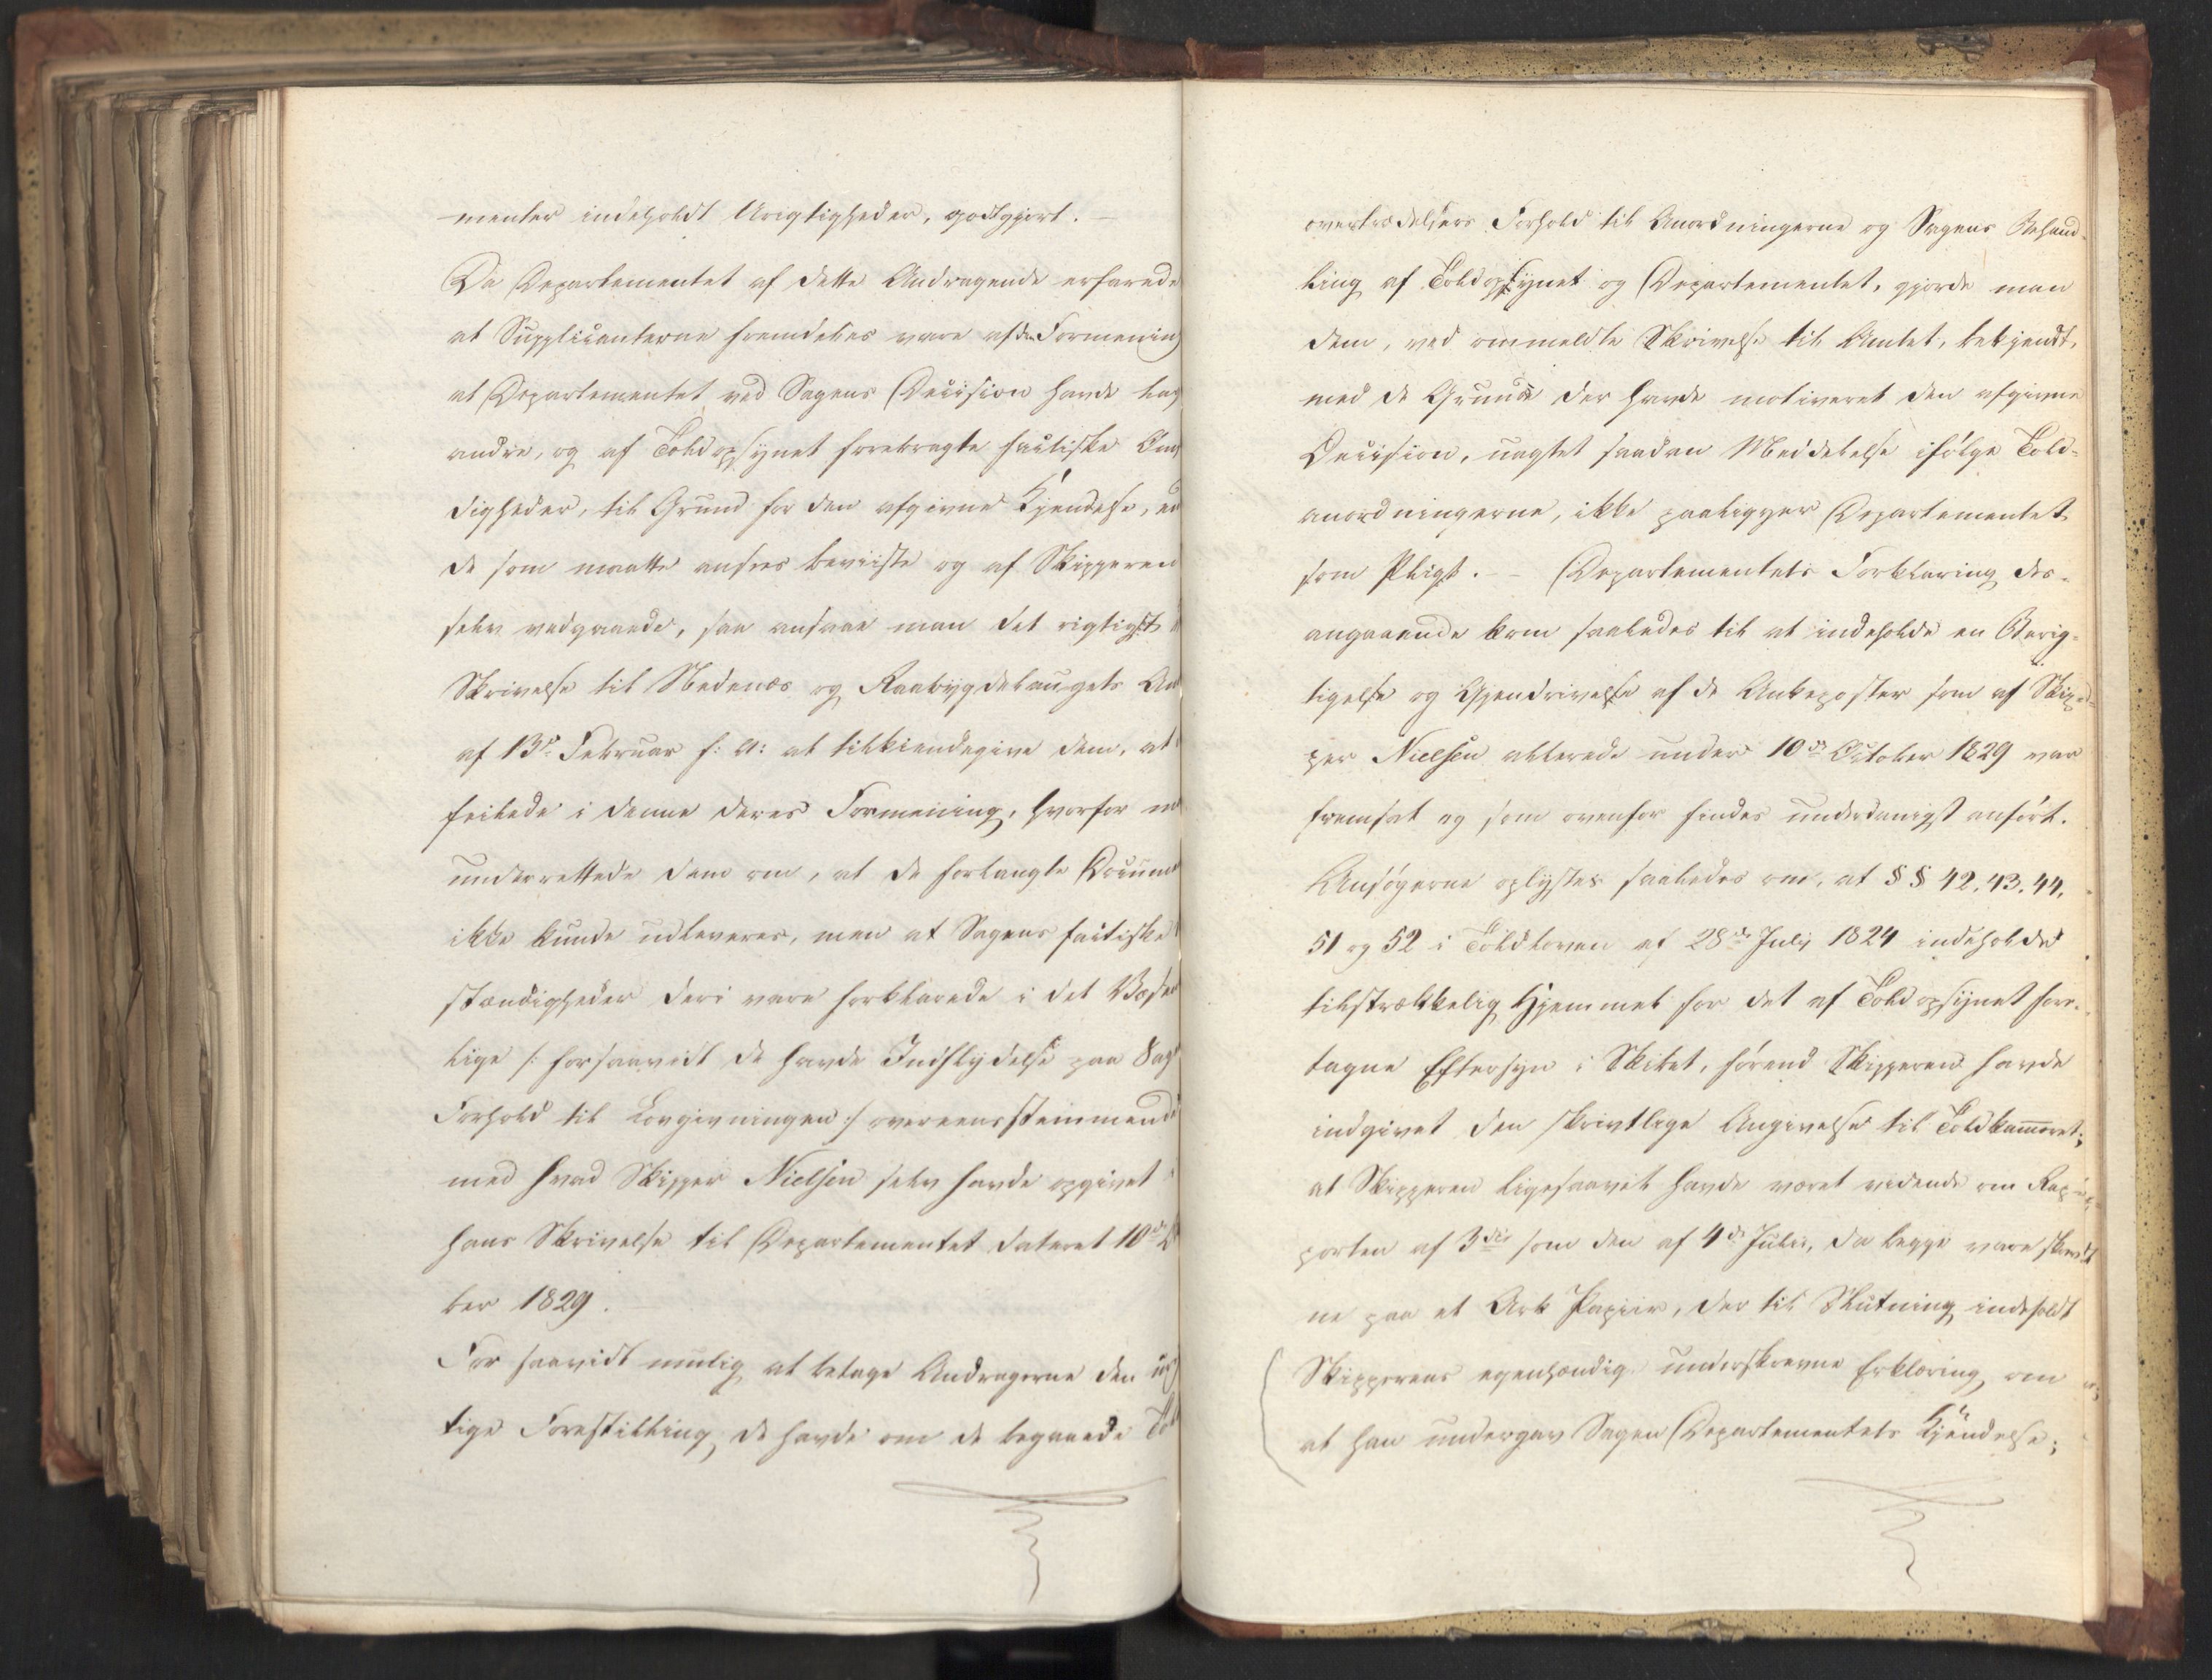 -menter indeholdt Urigtigheder, godtgjort. -
Da Departementet af dette Andragende erfarede
at Supplicanterne fremdeles vare af den Formening
at Departementet ved Sagens Decision havde lag
andre, og af Toldopsynet forebragte factiske Om
digheder, til Grund for den afgivne Kjendelse, en
de som maatte ansees beviiste og af Skipperen
selv vedgaaede, saa ansaae man det rigtigst i
Skrivelse til Nedenæs og Raabygdelaugets Am
af 13de Februar f: A: at tilkiendegive dem, at
feilede i denne deres Formening, hvorfor m
underrettede dem om, at de forlangte Docume
ikke kunde udleveres, men at Sagens factiske
stændigheder deri vare forklarede i det Væsen
lige /: forsaavidt de havde Indflydelse paa Sag
Forhold til Lovgivningen :/ overeensstemmende
med hvad Skipper Nielsen selv havde opgivet i
hans Skrivelse til Departementet dateret 10de
ber 1829.
For saavidt mulig at betage Andragerne den urig
tige Forestilling, de havde om de begaaede Tol
overtrædelsers Forhold til Anordningerne og Sagens Behand-
ling af Toldopsynet og Departementet, gjorde man
dem, ved ommeldte Skrivelse til Amtet, bekjendt,
med de Grunde der havde motiveret den afgivne
Decision, uagtet saadan Meddelelse ifølge Told-
anordningerne, ikke paaligger Departementet
som Pligt. - - Departementets Forklaring des-
angaaende kom saaledes til at indeholde en Berig-
tigelse og Gjendrivelse af de Ankeposter som af Skip-
per Nielsen allerede under 10de October 1829 var
fremsat og som ovenfor findes underdanigst anført.
Ansøgerne oplystes saaledes om, at §§ 42. 43. 44.
51 og 52 i Toldloven af 28de July 1824 indeholde
tilstrækkelig Hjemmel for det af Toldopsynet fore-
tagne Eftersyn i Skibet, førend Skipperen havde
indgivet den skrivtlige Angivelse til Toldkammeret;
at Skipperen ligesaavel havde været vidende om Rap-
porten af 3die som den af 4de Julii, da begge vare skrev
ne paa et Ark Papiir, der til Slutning indeholdt
Skipperens egenhændig underskrevne Erklæring om
at han undergav Sagen Departementets Kjendelse;